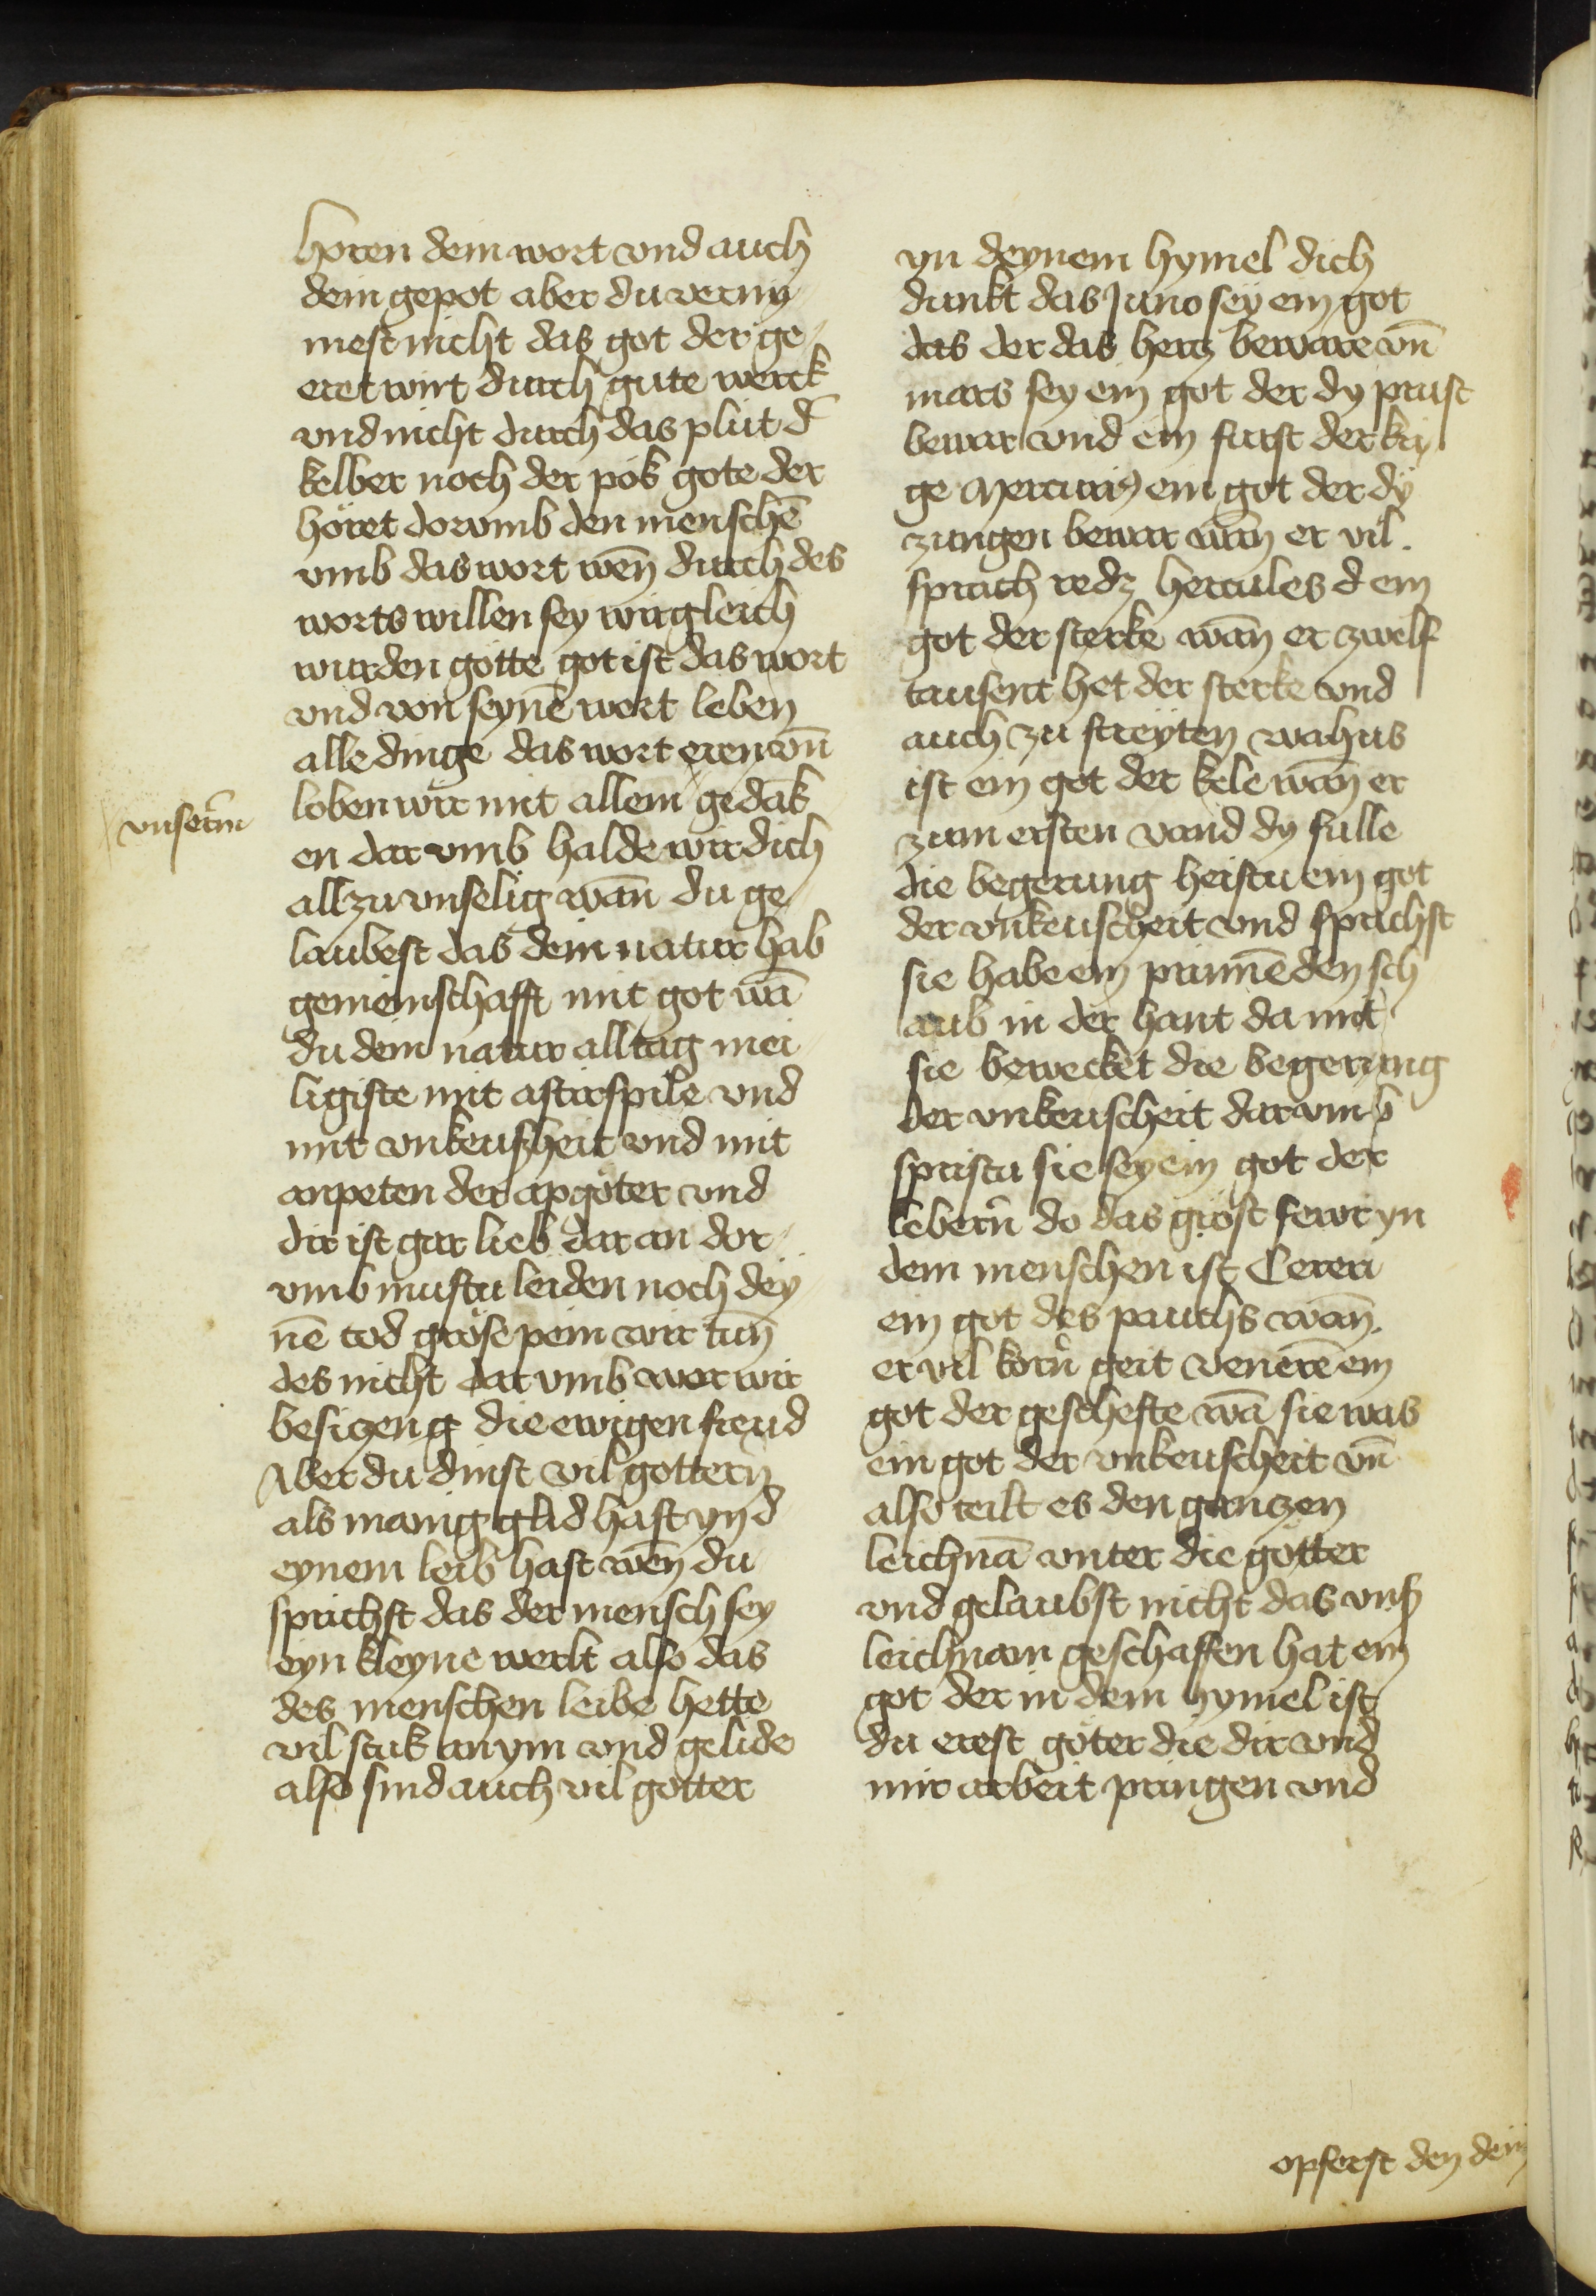 horen dem wort vnd auch
dein gepot aber du verny
mest nicht das got der ge
eret wirt durch gute werck
vnd nicht durch das plut d̄
kelber noch der pok gote der
höret dorvmb den menschē
vmb das wort wen̄ durch des
worts willen sey wir gleich
wurden gotte got ist das wort
vnd von seynē wort leben
alle dinge das wort eren vn̄
loben wir mit allem gedāk
vnserm̄
en dar vmb halde wir dich
allzu vnselig wan̄ du ge
laubest das dein natur hab
gemeinschafft mit got wā
du dein natur alltag mei
ligiste mit astirspile vnd
mit vnkeuscheit vnd mit
anpeten der apgöter vnd
dir ist gar lieb dar an dor
vmb mustu leiden noch dey
nē tod gröse pein wir tun̄
des nicht dar vmb wor wir
besizen die ewigen freud
Aber du dinst vil gottern̄
als manig glid hast yn d
eynem leib hast wen̄ du
sprichst das der mensch sey
eyn kleyne werlt also das
des menschen leibe hette
vil stuk an ym vnd gelide
also sind auch vil gotter
yn deynem hymel dich
dunkt das Juno sey ein got
das der das herz beware vn̄
mars sey ein got der dy prust
bewar vnd ein furst der kri
ge Mercuriꝰ ein got der dy
zungen bewar wan̄ er vil
sprach redz hercules d ein
got der sterke wan̄ er zwelf
tausent het der sterke vnd
auch zu streyten wahus
ist ein got der kele wan̄ er
zum ersten vand dy fulle
die begerung heistu ein got
der vnkeuscheit vnd sprichst
sie habe ein prinnēden sch
aub in der hant da mit
sie bewecket die begerung
der vnkeuscheit dar vmb
spristu sie sey ein got der
lebern̄ do das gröst fewr yn
dem menschen ist Cereri
ein got des pauchs wan̄
er vil korn̄ geit Venerē ein
got der geschefte wā sie was
ein got der vnkeuscheit vn̄
also teilt es den ganzen
leichnā vnter die götter
vnd gelaubst nicht das vnß
leichnam geschaffen hat ein
got der in dem hymel ist
du erest göter die dir vnd
mir arbeit pringen vnd
opferst den dein